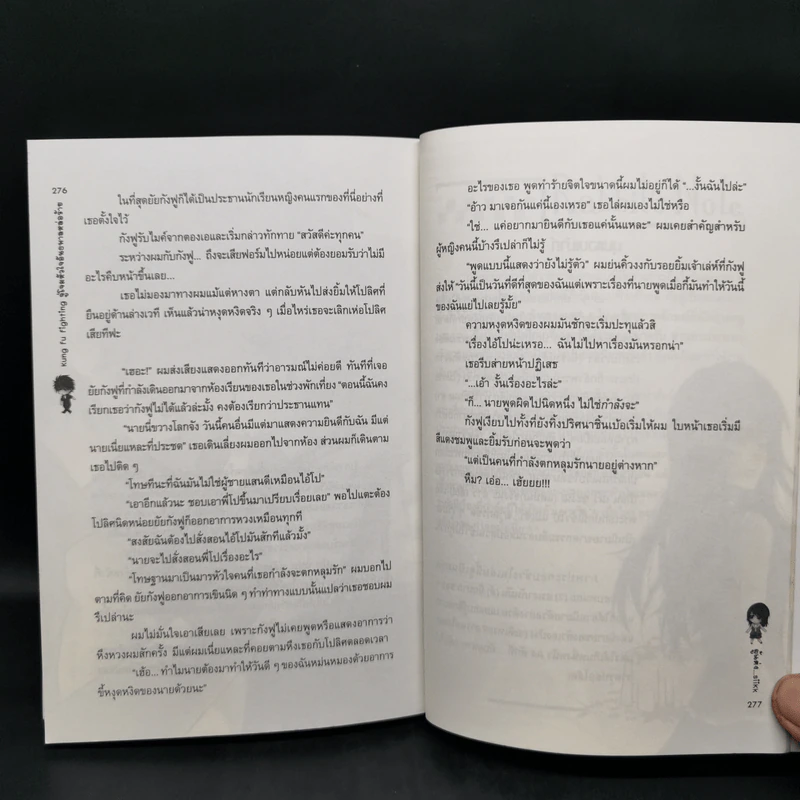 276
Kung fu fighting สู้โจมหัวใจยัยอพาลหล่อร้าย
ในที่สุดยัยกังฟูก็ได้เป็นประธานนักเรียนหญิงคนแรกของที่นี่อย่างที่
เธอตั้งใจไว้
กังฟูรับไมค์จากตองเอและเริ่มกล่าวทักทาย "สวัสดีค่ะทุกคน"
ระหว่างผมกับกังฟู... ถึงจะเสียฟอร์มไปหน่อยแต่ต้องยอมรับว่าไม่มี
อะไรคืบหน้าขึ้นเลย...
เธอไม่มองมาทางผมแม้แต่หางตา แต่กลับหันไปส่งยิ้มให้โปลิศที่
ยืนอยู่ด้านล่างเวที เห็นแล้วน่าหงุดหงิดจริง ๆ เมื่อไหร่เธอจะเลิกเห่อโปลิศ
เสียทีฟะ
"เฮอะ!" ผมส่งเสียงแสดงออกทันทีว่าอารมณ์ไม่ค่อยดี ทันทีที่เจอ
ยัยกังฟูที่กำลังเดินออกมาจากห้องเรียนของเธอในช่วงพักเที่ยง "ตอนนี้ฉันคง
เรียกเธอว่ากังฟูไม่ได้แล้วล่ะมั้ง คงต้องเรียกว่าประธานแทน"
"นายนี่ขวางโลกจัง วันนี้คนอื่นมีแต่มาแสดงความยินดีกับฉัน มีแต่
นายเนี่ยแหละที่ประชด" เธอเดินเลี่ยงผมออกไปจากห้อง ส่วนผมก็เดินตาม
เธอไปติด ๆ
"โทษทีนะที่ฉันมันไม่ใช่ผู้ชายแสนดีเหมือนไอ้โป"
"เอาอีกแล้วนะ ชอบเอาพี่โปขึ้นมาเปรียบเรื่อยเลย" พอไปแตะต้อง
โปลิศนิดหน่อยยัยกังฟูก็ออกอาการหวงเหมือนทุกที
"สงสัยฉันต้องไปสั่งสอนไอ้โปมันสักทีแล้วมั้ง"
"นายจะไปสั่งสอนพี่โปเรื่องอะไร"
"โทษฐานมาเป็นมารหัวใจคนที่เธอกำลังจะตกหลุมรัก" ผมบอกไป
ตามที่คิด ยัยกังฟูออกอาการเขินนิด ๆ ทำท่าทางแบบนั้นแปลว่าเธอชอบผม
รึเปล่านะ
ผมไม่มั่นใจเอาเสียเลย เพราะกังฟูไม่เคยพูดหรือแสดงอาการว่า
หึงหวงผมสักครั้ง มีแต่ผมเนี่ยแหละที่คอยตามหึงเธอกับโปลิศตลอดเวลา
"เฮ้อ... ทำไมนายต้องมาทำให้วันดี ๆ ของฉันหม่นหมองด้วยอาการ
ขี้หงุดหงิดของนายด้วยนะ"
อะไรของเธอ พูดทำร้ายจิตใจขนาดนี้ผมไม่อยู่ก็ได้ "...งั้นฉันไปล่ะ"
"อ้าว มาเจอกันแค่นี้เองเหรอ" เธอไล่ผมเองไม่ใช่หรือ
"ใช่... แค่อยากมายินดีกับเธอแค่นั้นแหละ" ผมเคยสำคัญสำหรับ
ผู้หญิงคนนี้บ้างรึเปล่าก็ไม่รู้
"พูดแบบนี้แสดงว่ายังไม่รู้ตัว" ผมย่นคิ้วงงกับรอยยิ้มเจ้าเล่ห์ที่กังฟู
ส่งให้ "วันนี้เป็นวันที่ดีที่สุดของฉันแต่เพราะเรื่องที่นายพูดเมื่อกี้มันทำให้วันนี้
ของฉันแย่ไปเลยรู้มั้ย"
ความหงุดหงิดของผมมันชักจะเริ่มปะทุแล้วสิ
"เรื่องไอ้โปน่ะเหรอ... ฉันไม่ไปหาเรื่องมันหรอกน่า"
เธอรีบส่ายหน้าปฏิเสธ
"...เอ้า งั้นเรื่องอะไรล่ะ"
"ก็... นายพูดผิดไปนิดหนึ่ง ไม่ใช่กำลังจะ"
กังฟูเงียบไปทั้งที่ยังทิ้งปริศนาชิ้นเบ้อเริ่มให้ผม ใบหน้าเธอเริ่มมี
สีแดงชมพูและยิ้มรับก่อนจะพูดว่า
"แต่เป็นคนที่กำลังตกหลุมรักนายอยู่ต่างหาก"
หืม? เอ่อ... เฮ้ยยย!!!
277